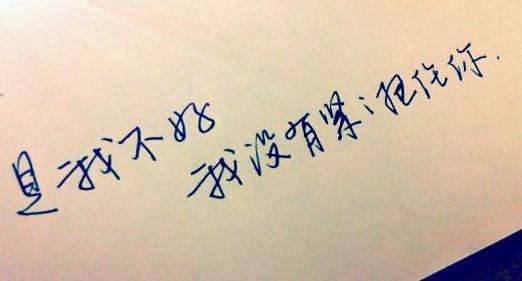 是我不好
我没有紧;抱住你.